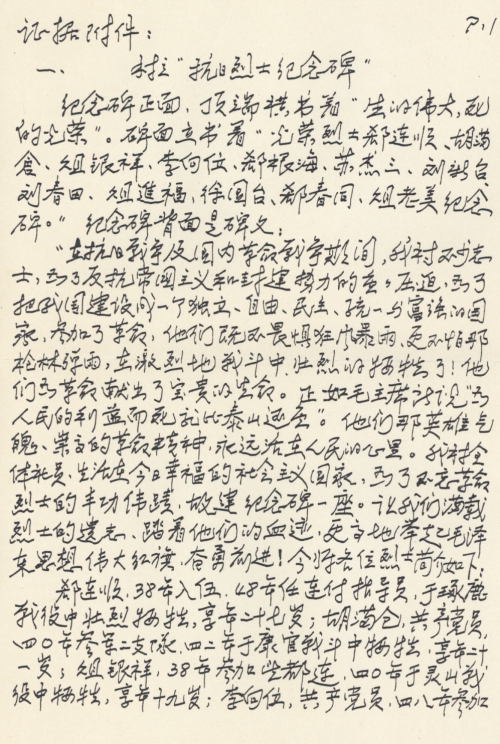 P.1
证据附件：
一、 村立“抗日烈士纪念碑”
纪念碑正面，顶端横书着“生的伟大，死
的光荣”。碑面立书着“光荣烈士郄连顺、胡满
仓、俎银祥、李向位、郄根海、苏杰三、刘新台
刘春田、俎进福，徐国台、郄春同、俎老美纪念
碑。”纪念碑背面是碑文：
“在抗日战争及国内革命战争期间，我村不少志
士，为了反抗帝国主义和封建势力的 压迫，为了
把我国建设成一个独立、自由、民主、统一与富强的国
家，参加了革命，他们既不畏惧狂风暴雨，更不怕那
枪林弹雨，在激烈地战斗中，壮烈的牺牲了！他
们为革命献出了宝贵的生命。正如毛主席所说“为
人民的利益而死就比泰山还重”。他们那英雄气
魄、崇高的革命精神，永远活在人民的心里。我村全
体社员，生活在今日幸福的社会主义国家，为了不忘革命
烈士的丰功伟蹟，故建纪念碑一座。让我们满载
烈士的遗志、踏着他们的血迹，更高地举起毛泽
东思想伟大红旗，奋勇前进！今将各位烈士简介如下：
郄连顺，38年入伍，48年任连付指导员，于琢鹿
战役中壮烈牺牲，享年二十七岁；胡满仓，共产党员，
四〇年参军二支队，四二年于康官战斗中牺牲，享年二十
一岁；俎银祥，38年参加 部连，四〇年于灵山战
役中牺牲，享年十九岁；李向位，共产党员，四八年参加